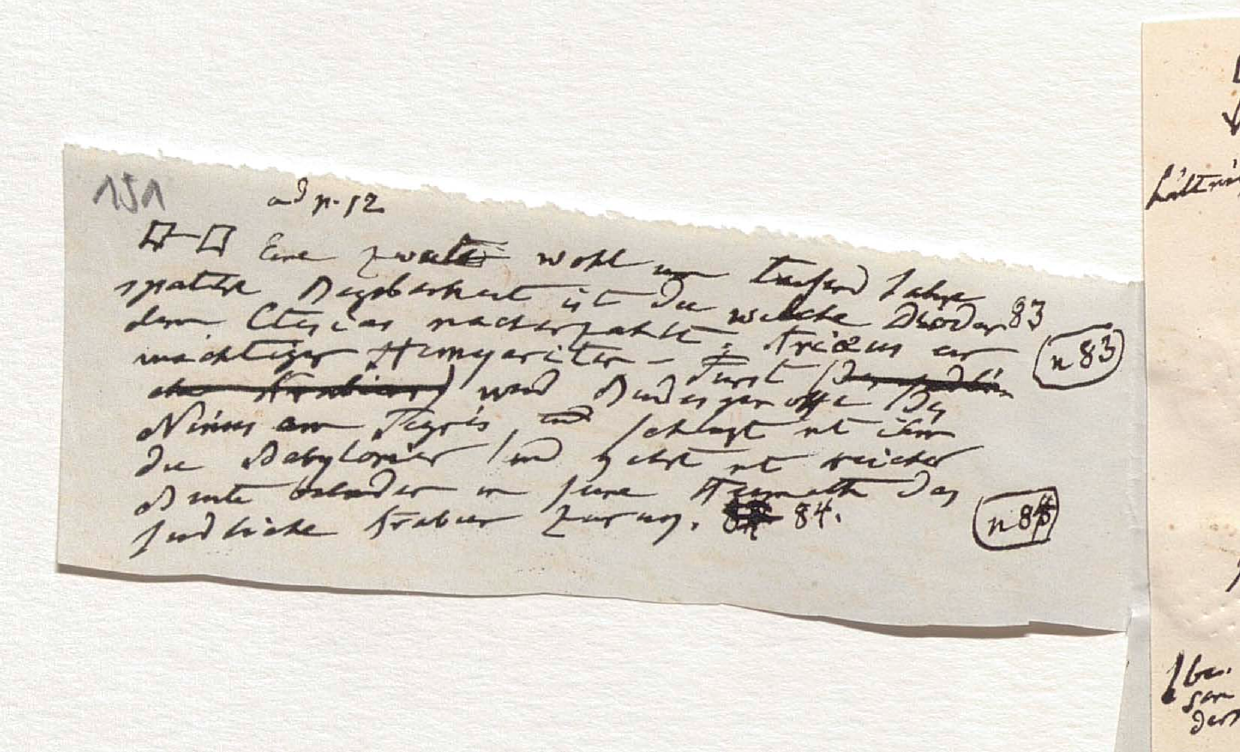 151
ad p. 52
Eine zweite wohl um tausend Jahre
spätere Begebenheit ist die welche Diodor 83
dem Ctesias nacherzählt: Ariaeus ein
n 83
mächtiger Himyariten-Fürst
wird Bundesgenosse des
Ninus am Tigris, schlägt mit ihm
die Babylonier und kehrt mit reicher
Beute beladen in seine Heimath das
südliche Arabien zurück. 84.
n 84
hält